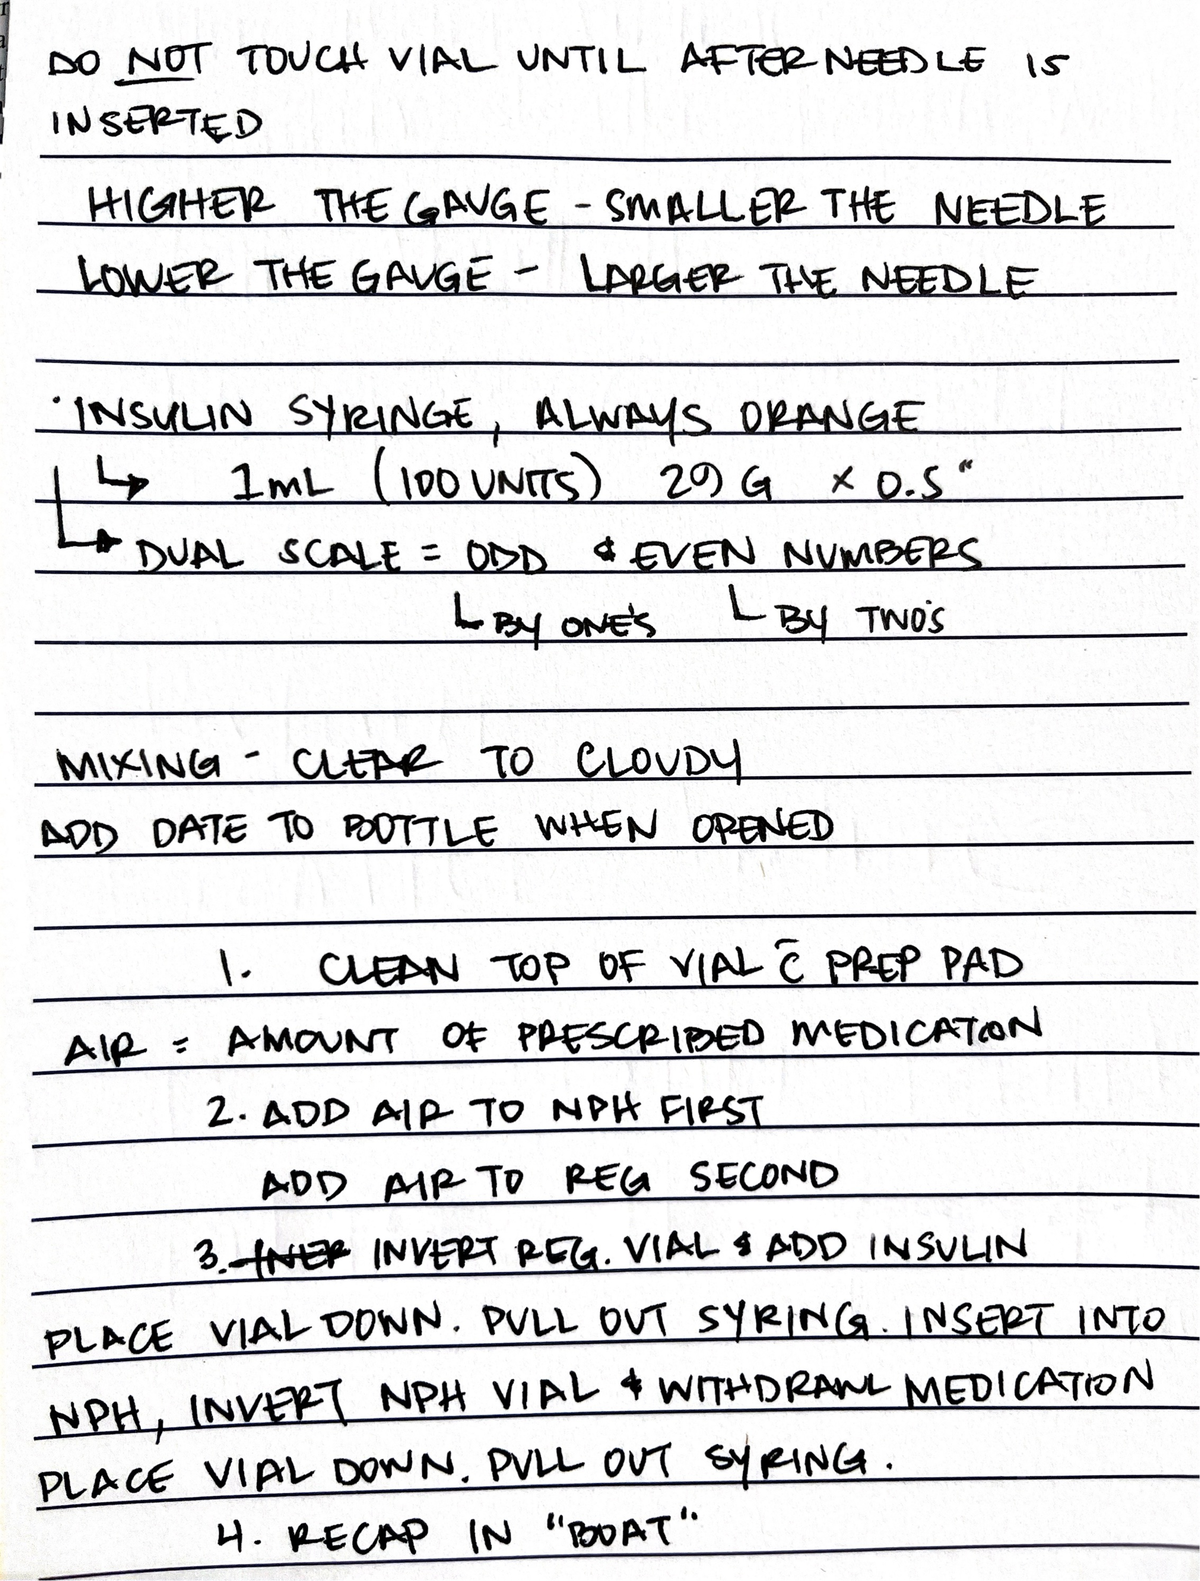 DO NOT TOUCH VIAL UNTIL AFTER NEEDLE IS
INSERTED
HIGHER THE GAUGE - SMALLER THE NEEDLE
LOWER THE GAUGE - LARGER THE NEEDLE
· INSULIN SYRINGE, ALWAYS ORANGE
↳ 1mL (100 UNITS) 29 G x 0.5"
↳ DUAL SCALE = ODD & EVEN NUMBERS
└ BY ONE'S └ BY TWO'S
MIXING - CLEAR TO CLOUDY
ADD DATE TO BOTTLE WHEN OPENED
1. CLEAN TOP OF VIAL c̄ PREP PAD
AIR = AMOUNT OF PRESCRIBED MEDICATION
2. ADD AIR TO NPH FIRST
ADD AIR TO REG SECOND
3. INVERT REG. VIAL & ADD INSULIN
PLACE VIAL DOWN. PULL OUT SYRING. INSERT INTO
NPH, INVERT NPH VIAL & WITHDRAWL MEDICATION
PLACE VIAL DOWN. PULL OUT SYRING.
4. RECAP IN "BOAT"